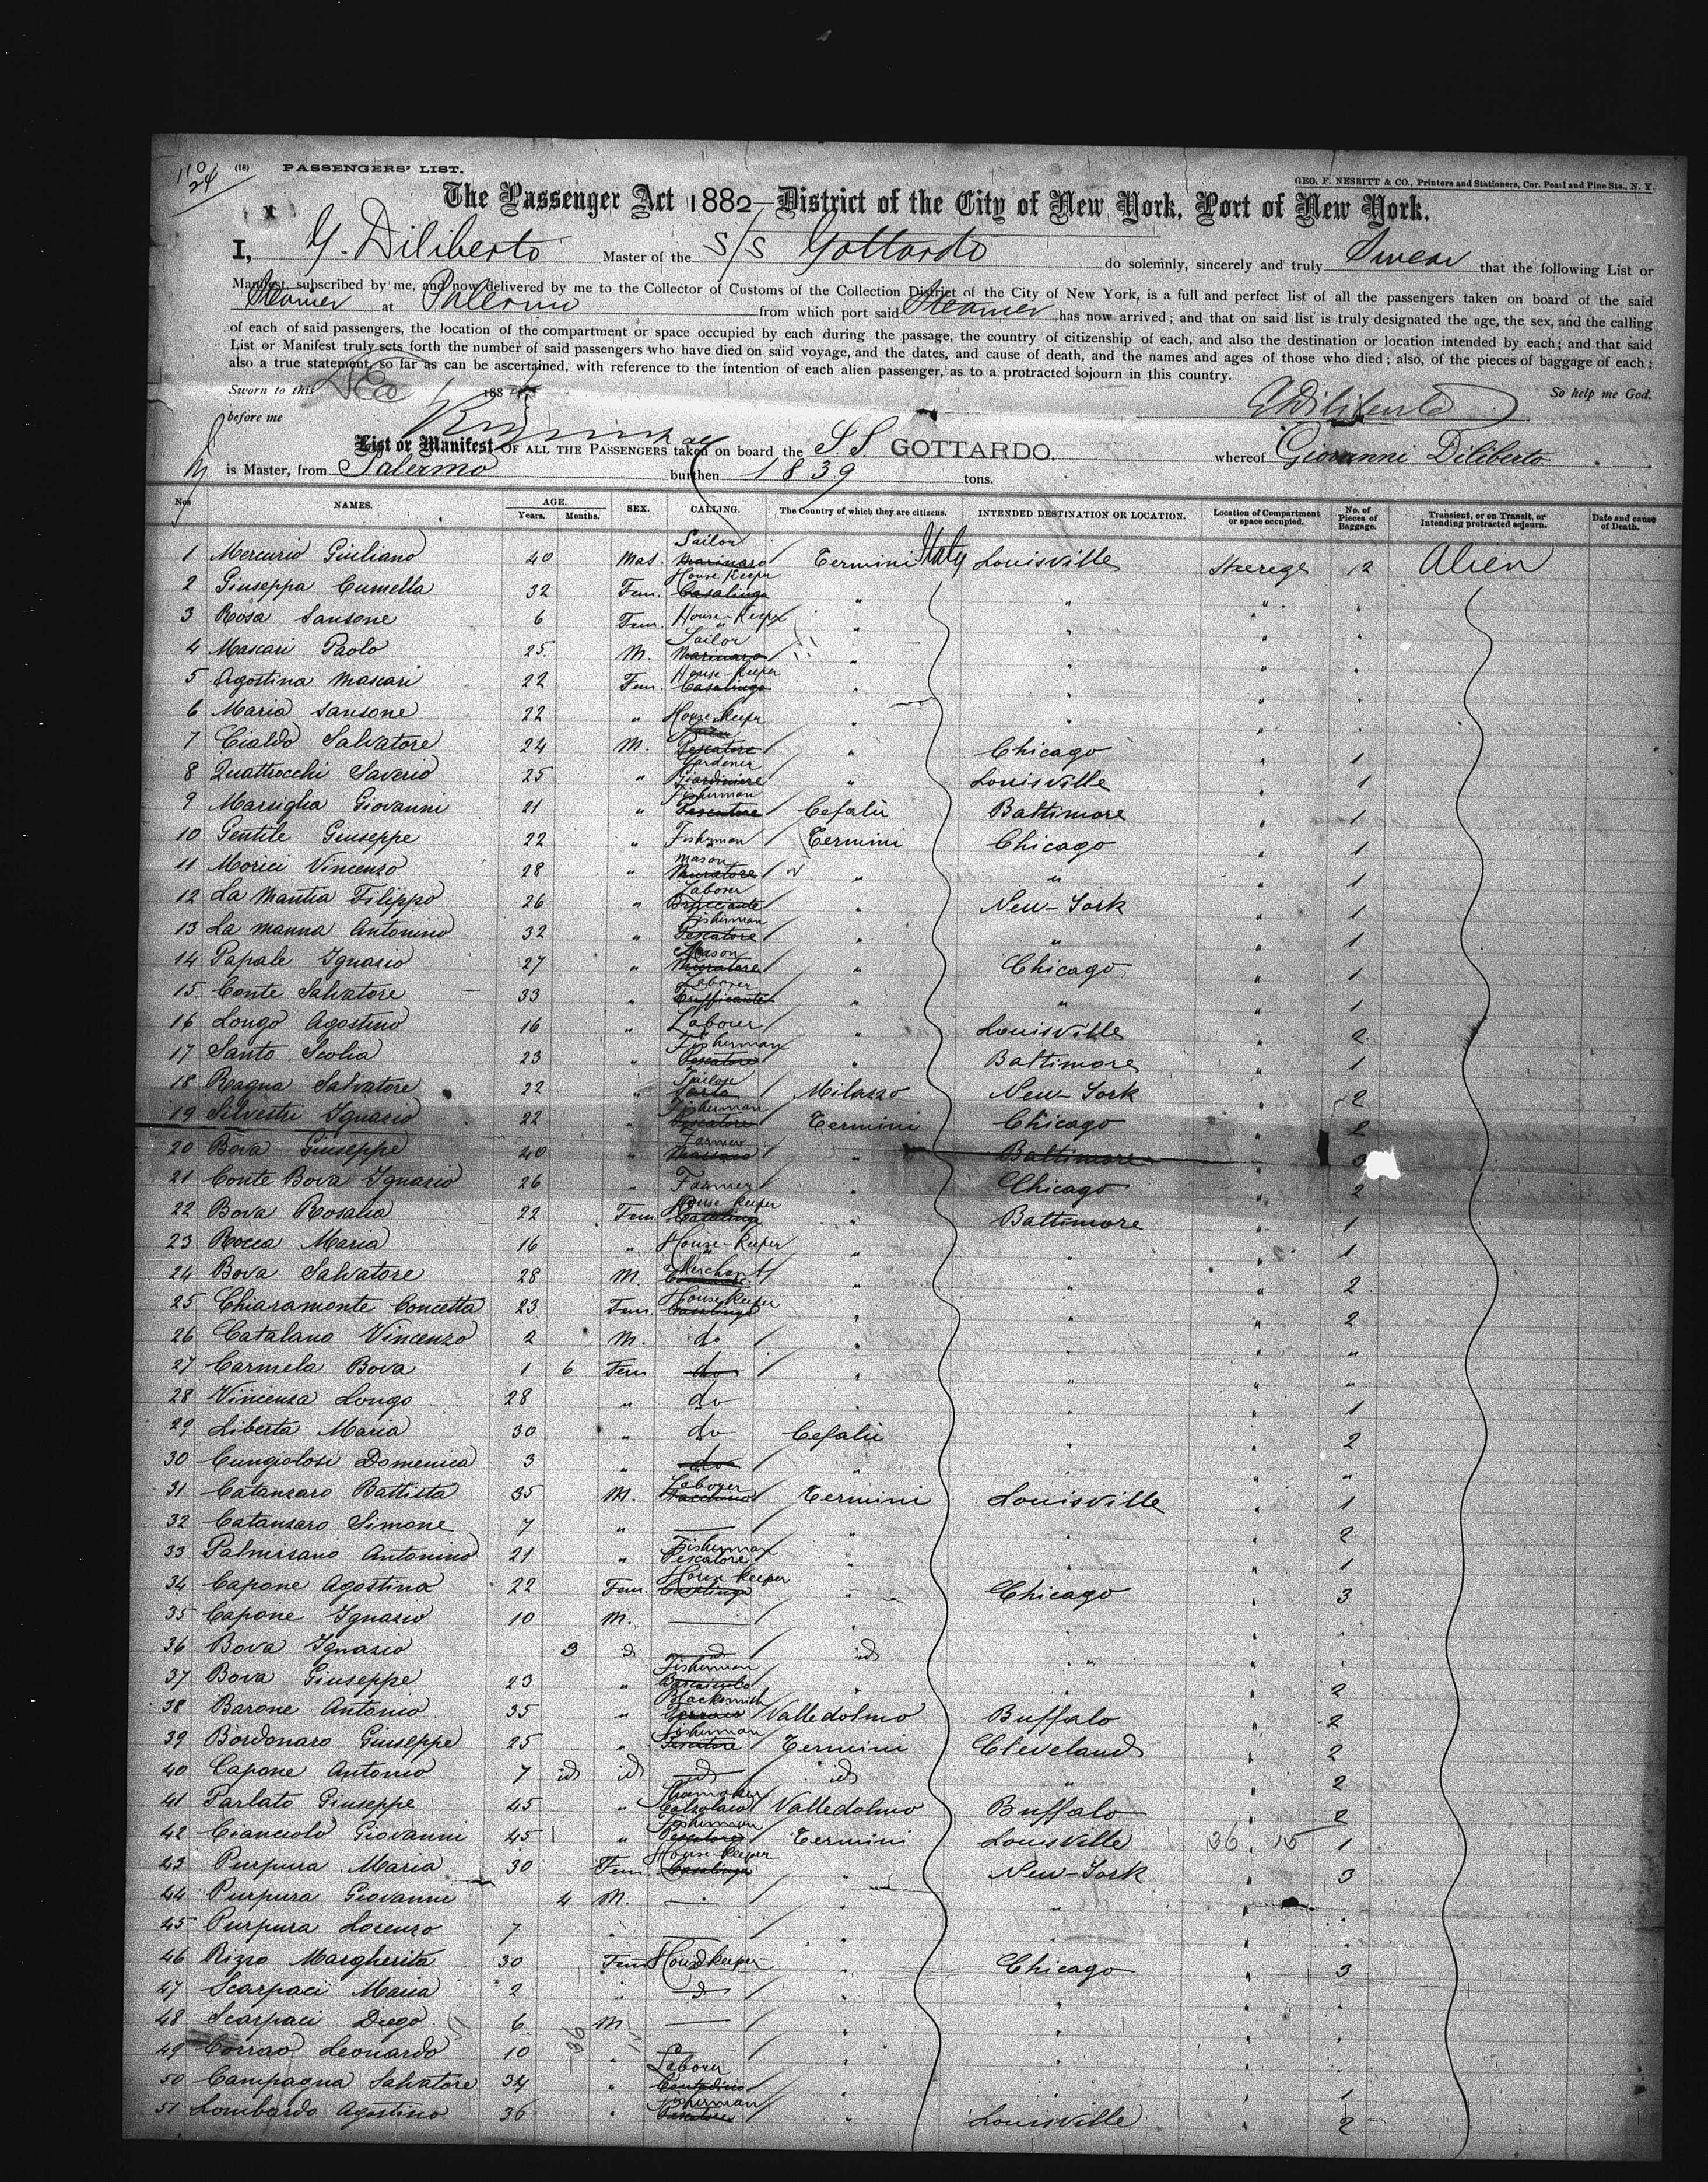 110
24
(18) PASSENGERS' LIST.
GEO. F. NESBITT & CO., Printers and Stationers, Cor. Pearl and Pine Sts., N. Y.
x
The Passenger Act 1882—District of the City of New York, Port of New York.
I, G. Diliberto Master of the S/S Gottardo do solemnly, sincerely and truly Swear that the following List or
Manifest, subscribed by me, and now delivered by me to the Collector of Customs of the Collection District of the City of New York, is a full and perfect list of all the passengers taken on board of the said
Steamer at Palermo from which port said Steamer has now arrived; and that on said list is truly designated the age, the sex, and the calling
of each of said passengers, the location of the compartment or space occupied by each during the passage, the country of citizenship of each, and also the destination or location intended by each; and that said
List or Manifest truly sets forth the number of said passengers who have died on said voyage, and the dates, and cause of death, and the names and ages of those who died; also, of the pieces of baggage of each;
also a true statement, so far as can be ascertained, with reference to the intention of each alien passenger, as to a protracted sojourn in this country.
Sworn to this 188 So help me God.
before me G Diliberto
List or Manifest OF ALL THE PASSENGERS taken on board the SS GOTTARDO. whereof Giovanni Diliberto
is Master, from Palermo burthen 1839 tons.
Nos NAMES. AGE. Years. Months. SEX. CALLING. The Country of which they are citizens. INTENDED DESTINATION OR LOCATION. Location of Compartment or space occupied. No. of Pieces of Baggage. Transient, or on Transit, or Intending protracted sojourn. Date and cause of Death.
1 Mercurio Giuliano 40 Mas. Marinaro Sailor Termini Italy Louisville Steerege 12 Alien
2 Giuseppa Cumella 32 Fem. Casalinga House Keeper " " " "
3 Rosa Sansone 6 Fem. House-Keeper " " " "
4 Mascari Paolo 25 M. Marinaro Sailor " " " "
5 Agostina Mascari 22 Fem. Casalinga House-Keeper " " " "
6 Maria Sansone 22 " House Keeper " " " "
7 Cialdo Salvatore 24 M. Pescatore " Chicago " 1
8 Quattrocchi Saverio 25 " Giardiniere Gardener " Louisville " 1
9 Marsiglia Giovanni 21 " Pescatore Fisherman Cefalù Baltimore " 1
10 Gentile Giuseppe 22 " Fisherman Termini Chicago " 1
11 Morici Vincenzo 28 " Muratore Mason " " " 1
12 La Mantia Filippo 26 " Bracciante Laborer " New-York " 1
13 La Manna Antonino 32 " Pescatore Fisherman " " " 1
14 Papale Ignazio 27 " Muratore Mason " Chicago " 1
15 Conte Salvatore 33 " Trafficante Laborer " " " 1
16 Longo Agostino 16 " Labourer " Louisville " 2
17 Santo Scolia 23 " Pescatore Fisherman " Baltimore " 1
18 Ragna Salvatore 22 " Sarto Tailor Milazzo New-York " 2
19 Silvestri Ignazio 22 " Pescatore Fisherman Termini Chicago " 2
20 Bova Giuseppe 40 " Massaro Farmer " Baltimore " 3
21 Conte Bova Ignazio 26 " Farmer " Chicago " 2
22 Bova Rosalia 22 Fem Casalinga House Keeper " Baltimore " 1
23 Rocca Maria 16 " House-Keeper " " " 1
24 Bova Salvatore 28 M. Merchant " " " 2
25 Chiaramonte Concetta 23 Fem. Casalinga House Keeper " " " 2
26 Catalano Vincenzo 2 M. do " " " "
27 Carmela Bova 1 6 Fem do " " " "
28 Vincenza Longo 28 " do " " " 1
29 Liberta Maria 30 " do Cefalù " " 2
30 Cungiolosi Domenica 3 " do " " " "
31 Catanzaro Battista 35 M. Facchino Laborer Termini Louisville " 1
32 Catanzaro Simone 7 " — " " " 2
33 Palmisano Antonino 21 " Pescatore Fisherman " " " 1
34 Capone Agostina 22 Fem. Casalinga House Keeper " Chicago " 3
35 Capone Ignazio 10 M. — " " " "
36 Bova Ignazio 3 id id id " " "
37 Bova Giuseppe 23 " Fisherman " " " 2
38 Barone Antonio 35 " Ferraro Blacksmith Valledolmo Buffalo " 2
39 Bordonaro Giuseppe 25 " Pescatore Fisherman Termini Cleveland " 2
40 Capone Antonio 7 id id id id " " 2
41 Parlato Giuseppe 45 " Calzolaio Shoemaker Valledolmo Buffalo " 2
42 Cianciolo Giovanni 45 " Pescatore Fisherman Termini Louisville 36 15 1
43 Purpura Maria 30 Fem Casalinga House Keeper " New-York " 3
44 Purpura Giovanni 4 M. — " " "
45 Purpura Lorenzo 7 " " " " "
46 Rizzo Margherita 30 Fem Housekeeper " Chicago " 3
47 Scarpaci Maria 2 " d " " " "
48 Scarpaci Diego 6 M — " " " "
49 Corrao Leonardo 10 " — " " " "
50 Campagna Salvatore 34 " Contadino Labourer " " " 1
51 Lombardo Agostino 36 " Pescatore Fisherman " Louisville " 2